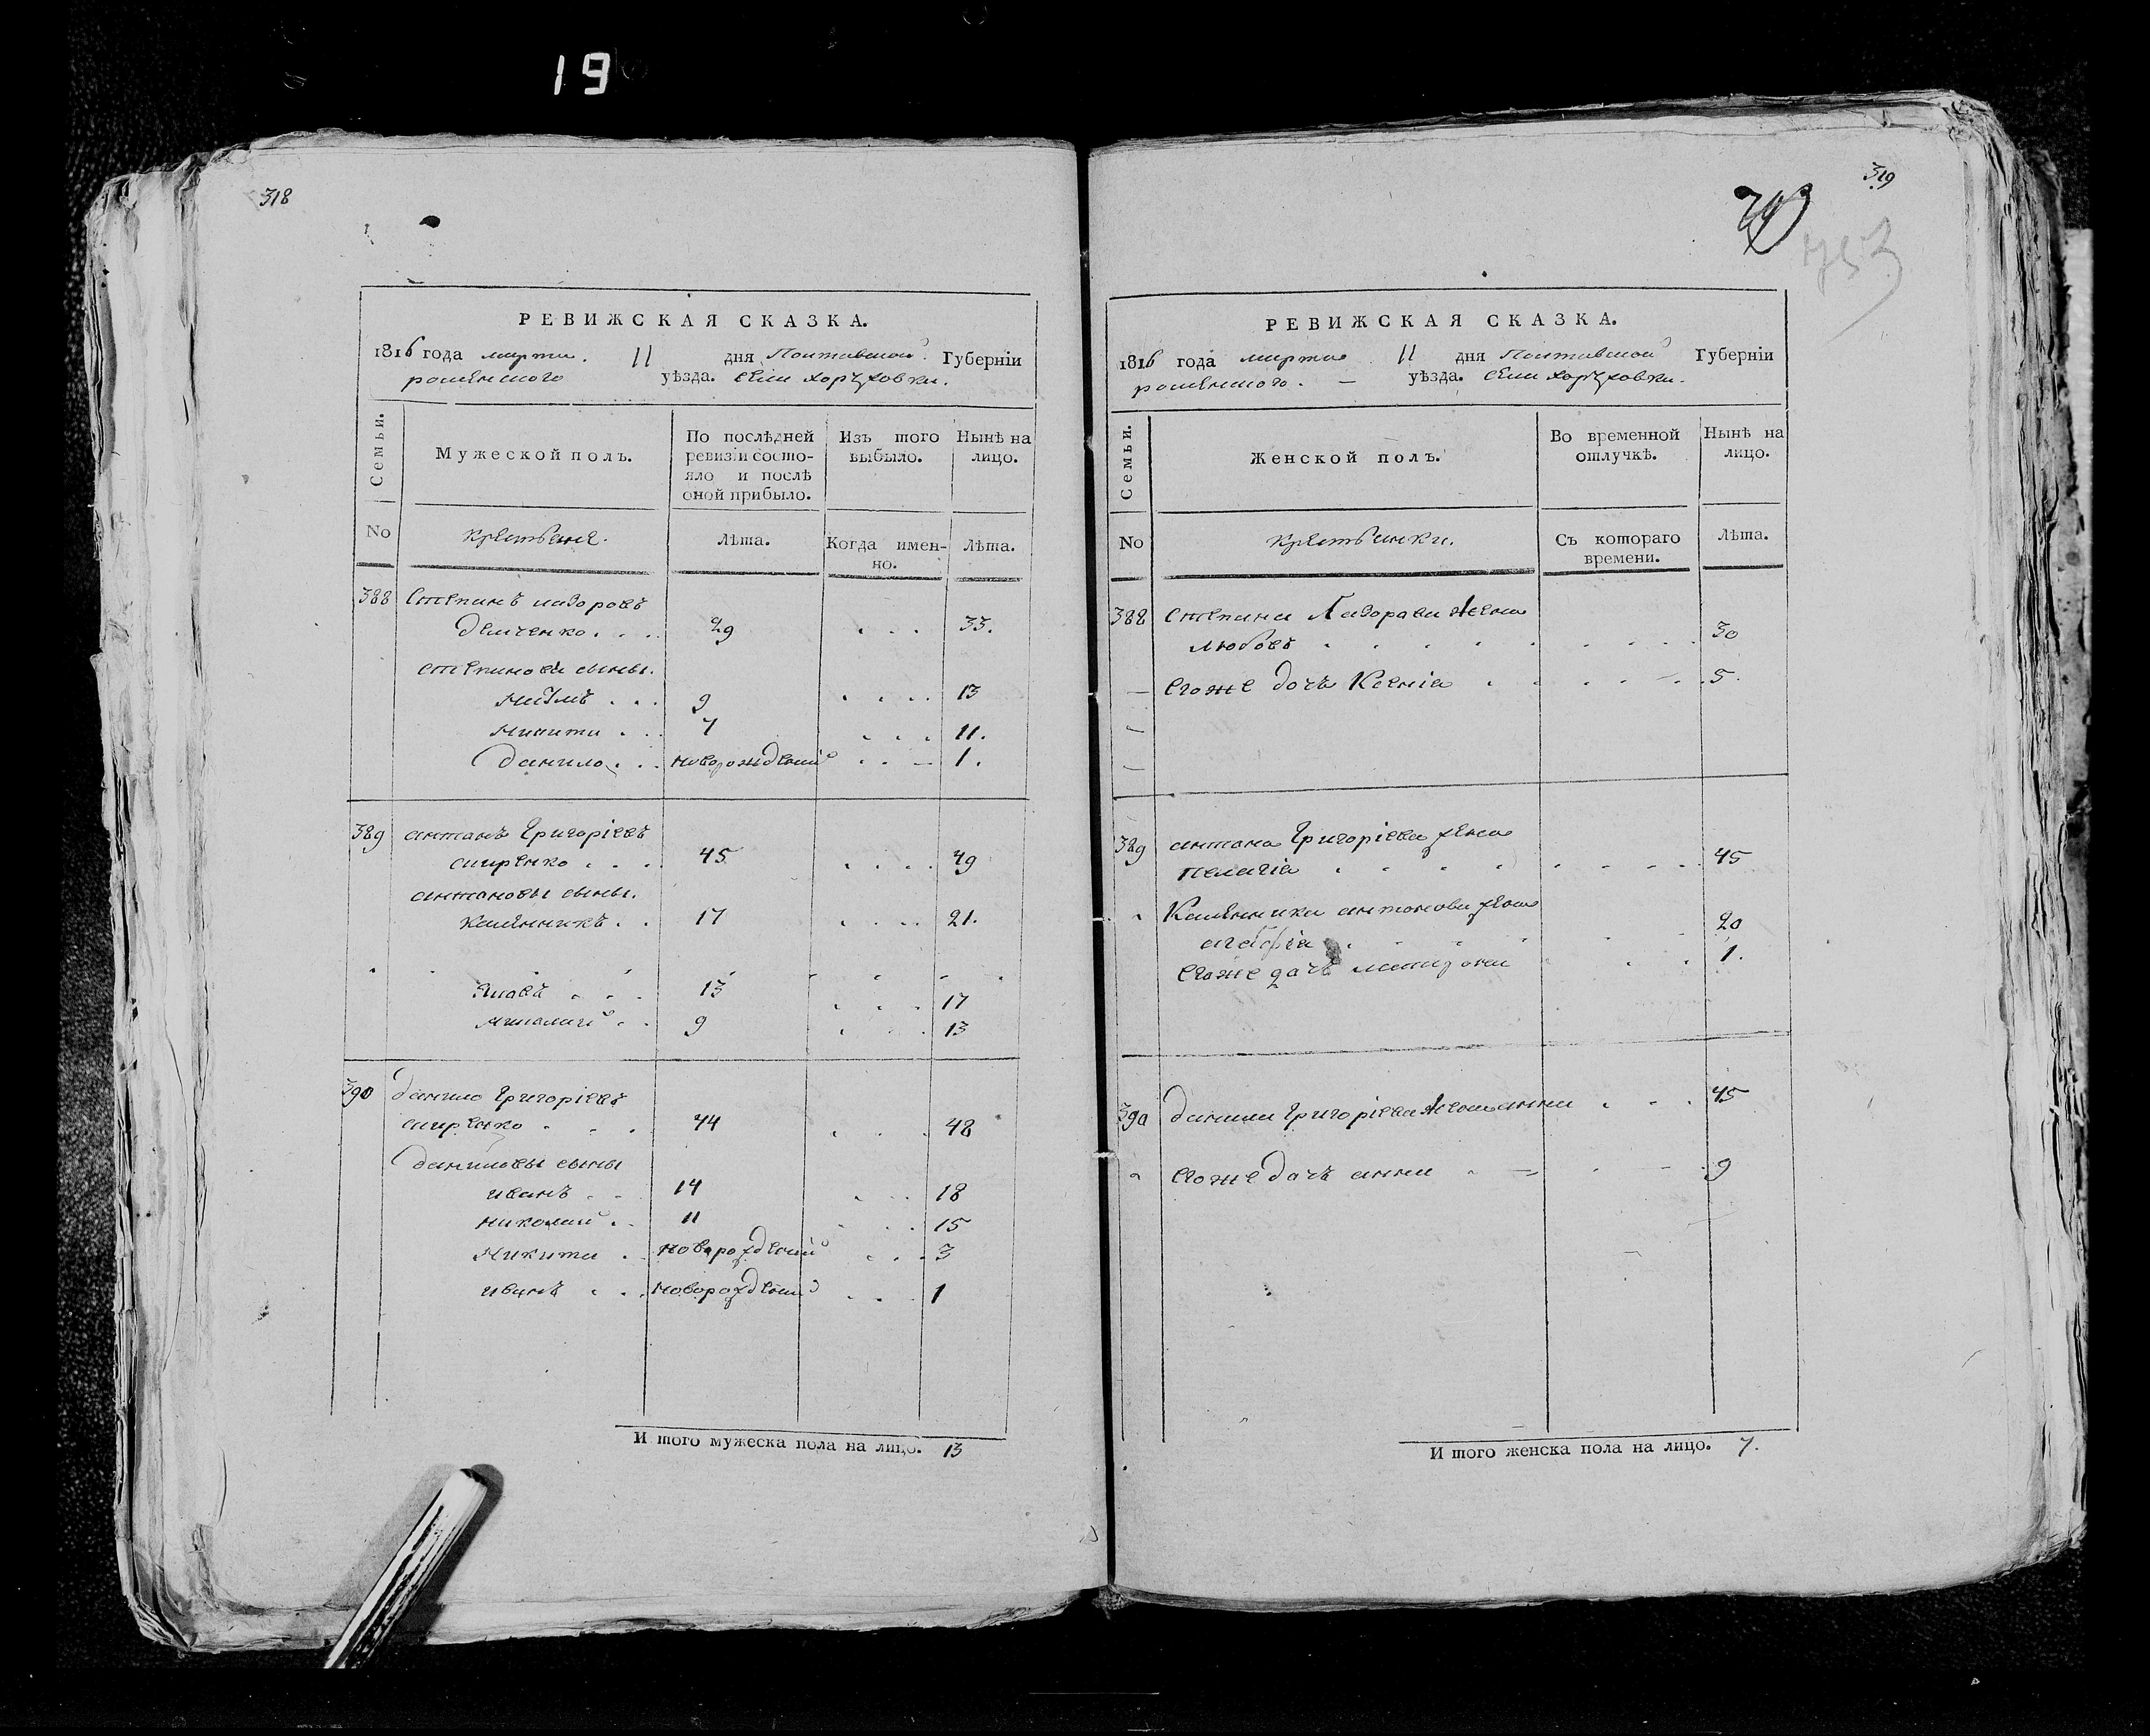 19
318
РЕВИЖСКАЯ СКАЗКА.
1816 года марта 11 дня Полтавской Губернїи
роменского уѣзда. села
Семьи.
Мужеской полъ.
По послѣдней ревизїи состояло и послѣ оной прибыло.
Изъ того выбыло.
Нынѣ на лицо.
No
крестьяне.
Лѣта.
Когда именно.
Лѣта.
388 Степанъ лазоровъ
демченко 29 33.
степановы сыны.
9 13
никита 7 11.
данило новорожденный 1.
389 антонъ григорїевъ
45 49
антоновы сыны.
калѣнникъ 17 21.
яковъ 13 17
9 13
390 данило григорїевъ
44 48
даниловы сыны
иванъ 14 18
николай 11 15
никита новорожденный 3
иванъ новорожденный 1
И того мужеска пола на лицо. 13
319
753
РЕВИЖСКАЯ СКАЗКА.
1816 года марта 11 дня Полтавской Губернїи
роменского. уѣзда. села
Семьи.
Женской полъ.
Во временной отлучкѣ.
Нынѣ на лицо.
No
крестьянки.
Съ котораго времени.
Лѣта.
388 степана Лазорава жена
любовъ 30
егоже дочъ Ксенїа 5.
389 антона григорїева жена
пелагїа 45
Калѣнника антонова жена
20
егоже дочъ 1.
390 данила григорїева жена анна 45
егоже дочъ анна 9
И того женска пола на лицо. 7.